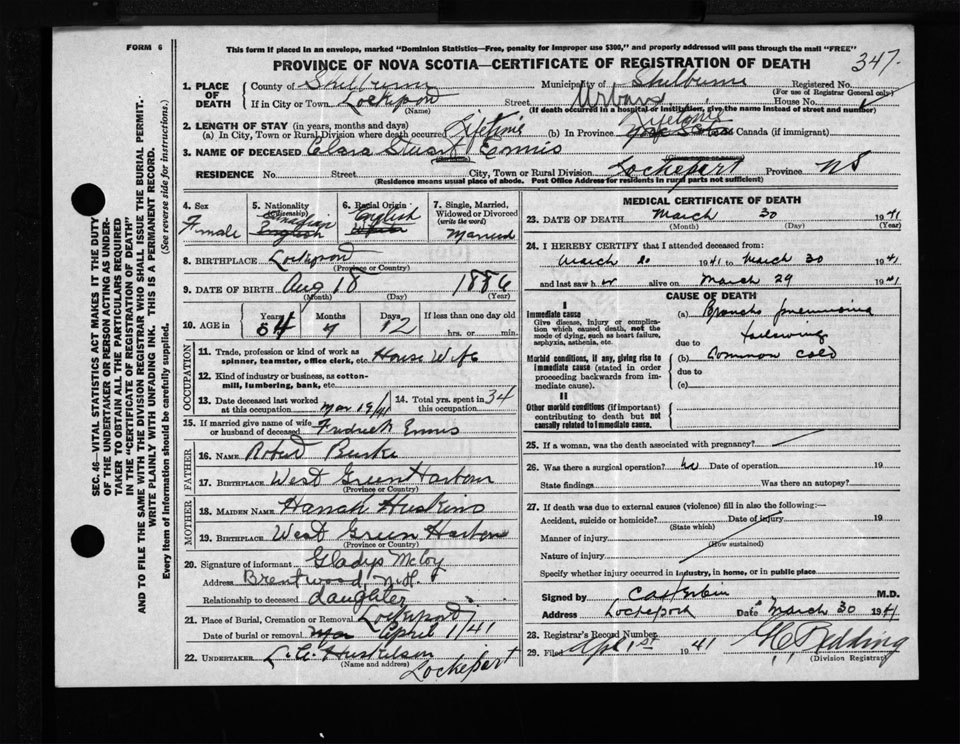 FORM 6
This form if placed in an envelope, marked "Dominion Statistics—Free, penalty for improper use $300," and properly addressed will pass through the mail "FREE"
PROVINCE OF NOVA SCOTIA—CERTIFICATE OF REGISTRATION OF DEATH
347.
1. PLACE OF DEATH
County of Shelburne Municipality of Shelburne Registered No.
(For use of Registrar General only)
If in City or Town Lockeport Street Urban House No.
(Name) (If death occurred in a hospital or institution, give the name instead of street and number)
2. LENGTH OF STAY (in years, months and days)
(a) In City, Town or Rural Division where death occurred Lifetime (b) In Province Lifetime Canada (if immigrant)
3. NAME OF DECEASED Clara Stuart Ennis
RESIDENCE No. Street City, Town or Rural Division Lockeport Province NS
(Residence means usual place of abode. Post Office Address for residents in rural parts not sufficient)
4. Sex Female
5. Nationality (Citizenship) Canadian English
6. Racial Origin English White
7. Single, Married, Widowed or Divorced (write the word) Married
8. BIRTHPLACE Lockeport
(Province or Country)
9. DATE OF BIRTH Aug 18 1886
(Month) (Day) (Year)
10. AGE in Years 54 Months 7 Days 12 If less than one day old
hrs. or min.
OCCUPATION
11. Trade, profession or kind of work as spinner, teamster, office clerk, etc. House Wife
12. Kind of industry or business, as cotton-mill, lumbering, bank, etc.
13. Date deceased last worked at this occupation Mar 19/41 14. Total yrs. spent in this occupation 34
15. If married give name of wife or husband of deceased Fredrick Ennis
FATHER
16. NAME Robert Burke
17. BIRTHPLACE West Green Harbour
(Province or Country)
MOTHER
18. MAIDEN NAME Hannah Huskins
19. BIRTHPLACE West Green Harbour
(Province or Country)
20. Signature of informant Gladys McCoy
Address Brentwood, N.H.
Relationship to deceased daughter
21. Place of Burial, Cremation or Removal Lockeport
Date of burial or removal Mar April 1/41
22. UNDERTAKER L. A. Huskilson
(Name and address) Lockeport
MEDICAL CERTIFICATE OF DEATH
23. DATE OF DEATH March 30 1941
(Month) (Day) (Year)
24. I HEREBY CERTIFY that I attended deceased from:
March 20 1941 to March 30 1941
and last saw her alive on March 29 1941
CAUSE OF DEATH
I
Immediate cause
Give disease, injury or complication which caused death, not the mode of dying, such as heart failure, asphyxia, asthenia, etc.
(a) Broncho pneumonia
due to following
Morbid conditions, if any, giving rise to immediate cause (stated in order proceeding backwards from immediate cause).
(b) Common cold
due to
(c)
II
Other morbid conditions (if important) contributing to death but not causally related to immediate cause.
25. If a woman, was the death associated with pregnancy?
26. Was there a surgical operation? no Date of operation 19
State findings Was there an autopsy?
27. If death was due to external causes (violence) fill in also the following:—
Accident, suicide or homicide? Date of injury 19
(State which)
Manner of injury
(How sustained)
Nature of injury
Specify whether injury occurred in industry, in home, or in public place
Signed by M.D.
Address Lockeport Date March 30 1941
28. Registrar's Record Number
29. Filed Apl 1st 1941 Redding
(Division Registrar)
SEC. 46—VITAL STATISTICS ACT MAKES IT THE DUTY
OF THE UNDERTAKER OR PERSON ACTING AS UNDER-
TAKER TO OBTAIN ALL THE PARTICULARS REQUIRED
IN THE "CERTIFICATE OF REGISTRATION OF DEATH"
AND TO FILE THE SAME WITH THE DIVISION REGISTRAR WHO SHALL ISSUE THE BURIAL PERMIT.
WRITE PLAINLY WITH UNFADING INK. THIS IS A PERMANENT RECORD.
Every item of Information should be carefully supplied. (See reverse side for instructions.)